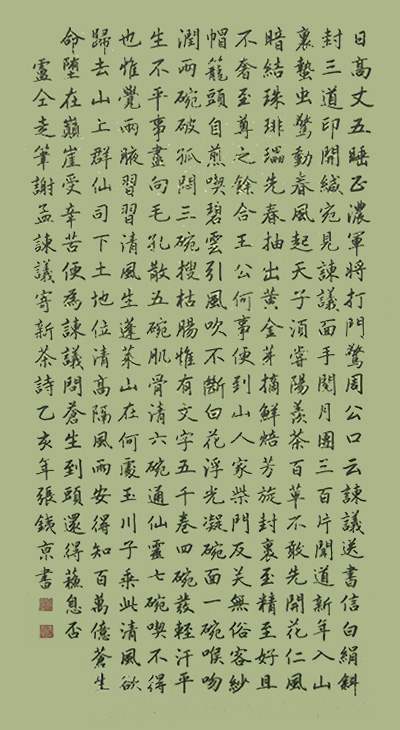 日高丈五睡正濃軍將打門驚周公口云諫議送書信白絹斜
封三道印開緘宛見諫議面手閱月團三百片聞道新年入山
裏蟄虫驚動春風起天子須嘗陽羨茶百草不敢先開花仁風
暗結珠琲瓃先春抽出黃金芽摘鮮焙芳旋封裹至精至好且
不奢至尊之餘合王公何事便到山人家柴門反关無俗客紗
帽籠頭自煎喫碧雲引風吹不斷白花浮光凝碗面一碗喉吻
潤兩碗破孤悶三碗搜枯腸惟有文字五千卷四碗發輕汗平
生不平事盡向毛孔散五碗肌骨清六碗通仙靈七碗喫不得
也惟覺兩腋習習清風生蓬萊山在何處玉川子乘此清風欲
歸去山上群仙司下土地位清高隔風雨安得知百萬億蒼生
命墮在巔崖受辛苦便為諫議問蒼生到頭還得蘓息否
盧仝走筆謝孟諫議寄新茶詩乙亥年張銕京書